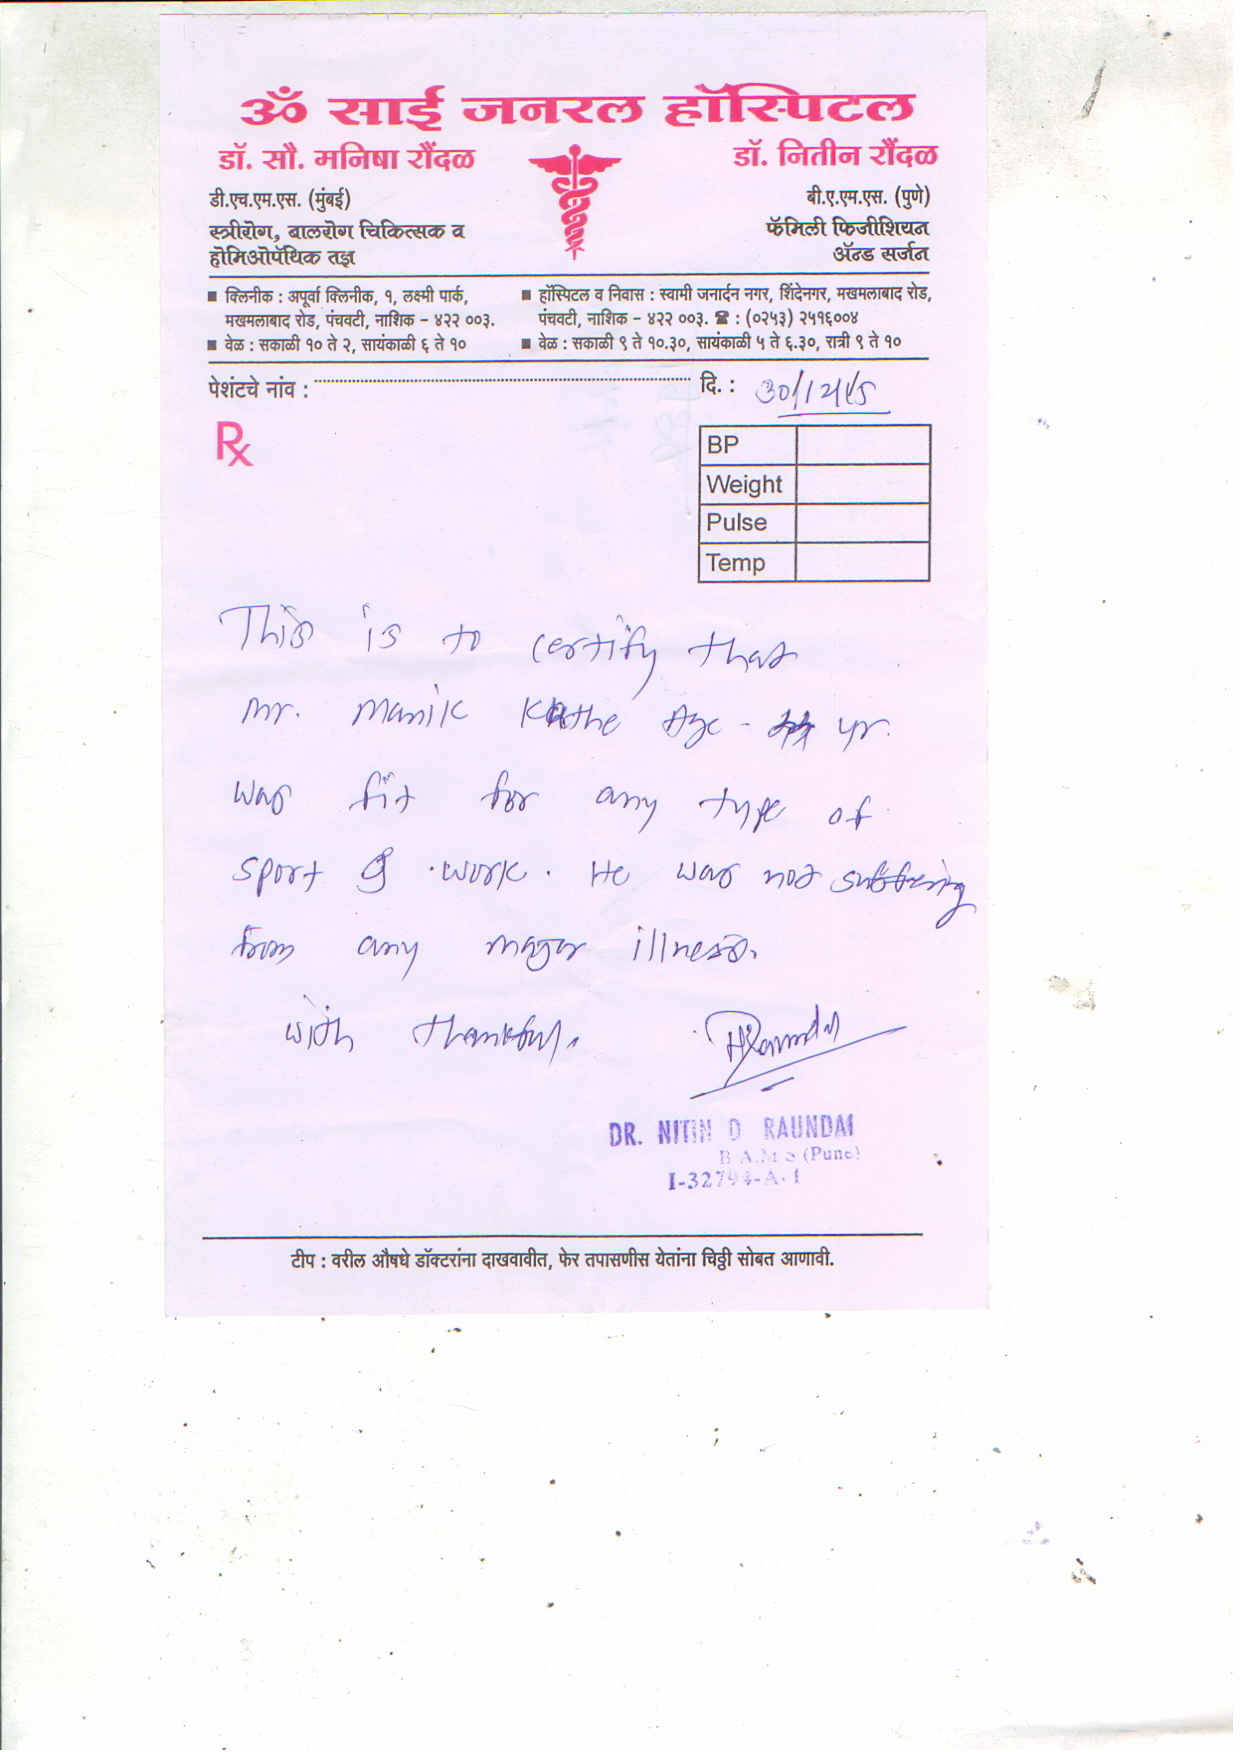 ॐ साई जनरल हॉस्पिटल
डॉ. सौ. मनिषा रौंदळ
डी.एच.एम.एस. (मुंबई)
स्त्रीरोग, बालरोग चिकित्सक व
होमिओपॅथिक तज्ञ
डॉ. नितीन रौंदळ
बी.ए.एम.एस. (पुणे)
फॅमिली फिजीशियन
ॲन्ड सर्जन
■ क्लिनीक : अपूर्वा क्लिनीक, १, लक्ष्मी पार्क,
मखमलाबाद रोड, पंचवटी, नाशिक - ४२२ ००३.
■ वेळ : सकाळी १० ते २, सायंकाळी ६ ते १०
■ हॉस्पिटल व निवास : स्वामी जनार्दन नगर, शिंदेनगर, मखमलाबाद रोड,
पंचवटी, नाशिक - ४२२ ००३. ☎ : (०२५३) २५१६००४
■ वेळ : सकाळी ९ ते १०.३०, सायंकाळी ५ ते ६.३०, रात्री ९ ते १०
पेशंटचे नांव : दि. : 30/12/15
Rx
BP
Weight
Pulse
Temp
This is to certify that
mr. manik Kathe Age - yr.
was fit for any type of
sport & work. He was not suffering
from any major illness.
with thankful.
DR. NITIN D RAUNDAL
B.A.M.S (Pune)
I-32794-A-1
टीप : वरील औषधे डॉक्टरांना दाखवावीत, फेर तपासणीस येतांना चिठ्ठी सोबत आणावी.